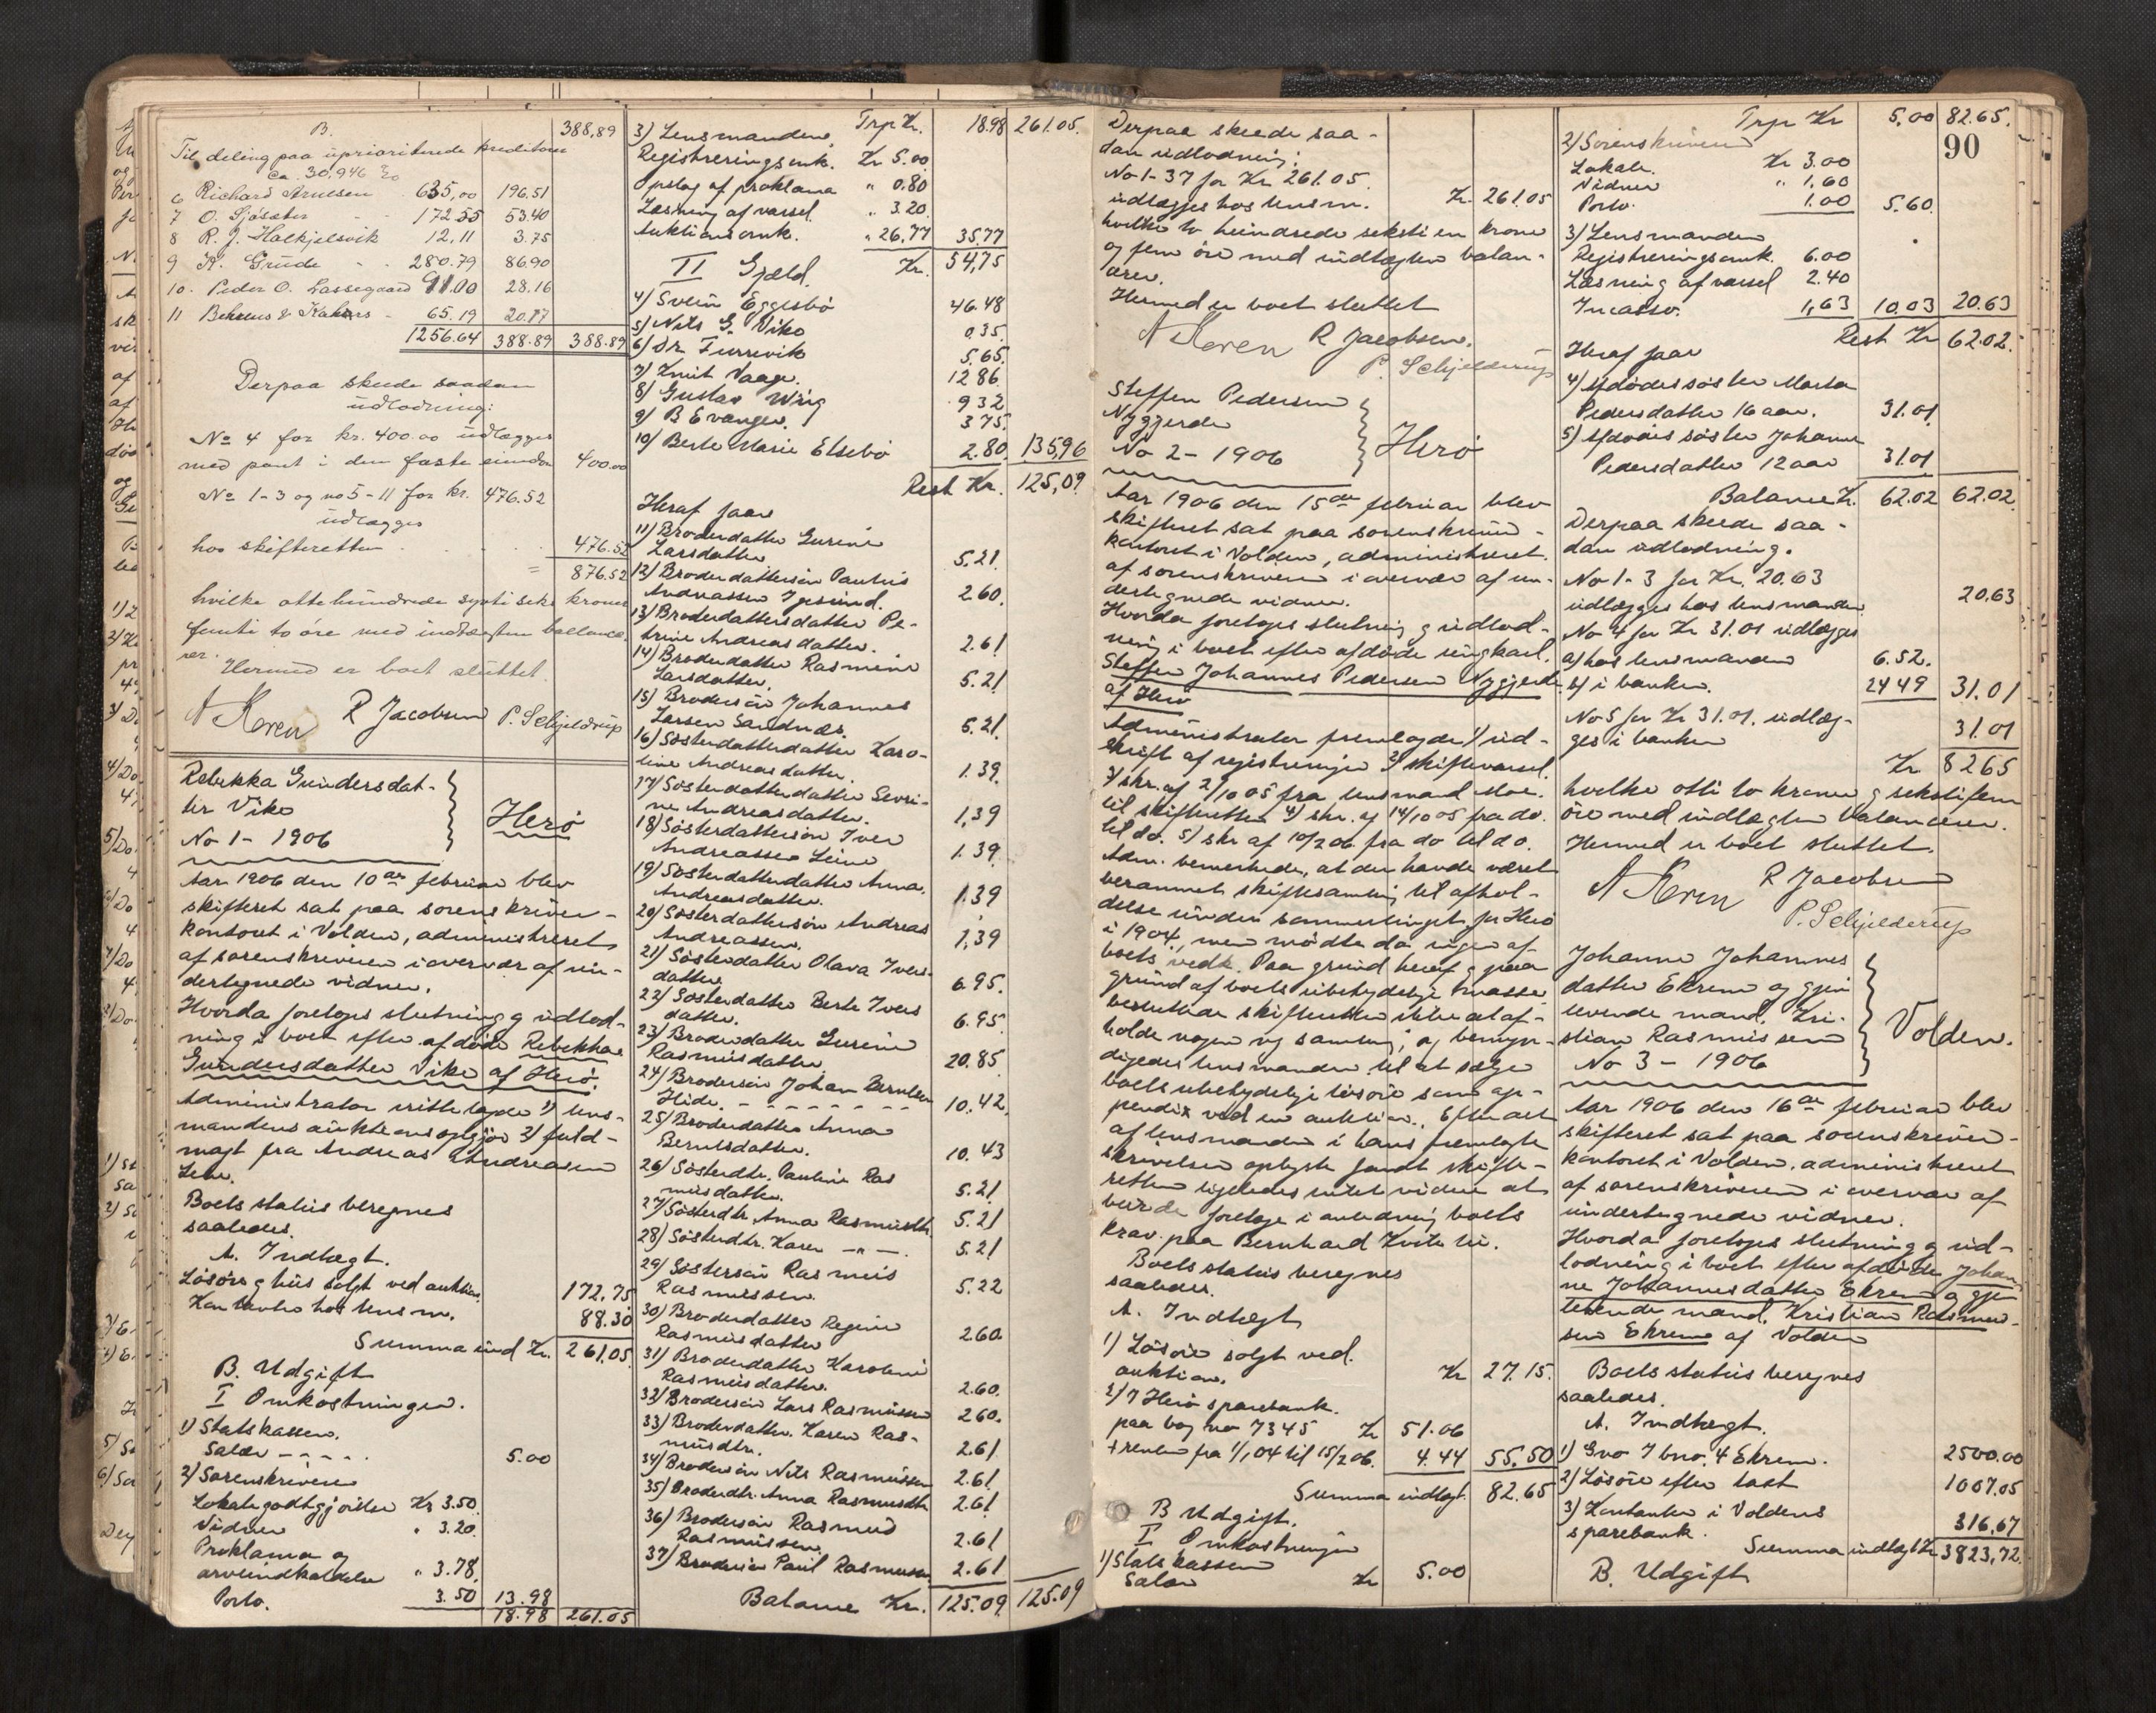 B. 388,89
Til deling paa uprioriterede kreditorer
ca. 30,946 %
6 Richard Arnesen 635,00 196.51
7 O. Sjöseter 172.55 53.40
8 R. J. Halkjelsvik 12,11 3.75
9 K. Grude 280.79 86.90
10. Peder O. Lassegaard 91.00 28.16
11 Behrens & 65.19 20.17
1256.64 388.89 388.89
Derpaa skeede saadan
udlodning:
No 4 for kr. 400.00 udlægges
med pant i den faste eiendom 400.00
No 1-3 og no 5-11 for kr. 476.52
udlægges
hos skifteretten 476.52
= 876.52
hvilke ottehundrede sytti seks kroner
femti to øre med indtægten ballance-
rer.
Hermed er boet sluttet.
A Koren R Jacobsen P. Schjelderup
Rebekka Gundersdat-
ter Vike
No 1 - 1906
Herö
Aar 1906 den 10de februar blev
skifteret sat paa sorenskriver-
kontoret i Volden, administreret
af sorenskriveren i overvær af un-
dertegnede vidner.
Hvorda foretoges slutning g udlod-
ning i boet efter afdöde Rebekka
Gundersdatter Vike af Herö.
Administrator fremlagde 1) lens-
mandens auktionsopgjör 2) fuld-
magt fra Andreas Andreasen
Leine.
Boets status beregnes
saaledes.
A. Indtægt.
Lösöre g hus solgt ved auktion. 172,75
Kontanter hos lensm. 88.30
Summa ind Kr. 261.05
B. Udgift
I Omkostninger.
1) Statskassen.
Salær - - - - 5.00
2) Sorenskriveren
Lokalegodtgjörelse Kr 3.50
Vidner " 3.20.
Proklama og
arveindkaldelse " 3.78,
Porto. 3.50 13.98
18.98 261.05
Trp Kr. 18.98 261.05.
3) Lensmanden
Registreringsomk. Kr 5.00
Opslag af proklama " 0.80
Læsning af varsel. " 3.20.
Auktionsomk. " 26,77 35,77
Kr. 54,75
II Gjæld.
4) Svein Eggesbö 46.48
5) Nils G. Vike 0.35.
6) Dr. Furrevik 5.65.
7) Knut Vaage. 12.86.
8) Gustav Wiig 9.32
9) B Evanger. 3.75.
10) Berte Marie Elsebö 2.80 135,96
Rest Kr. 125,09.
Heraf faar
11) Broderdatter Gurine
Larsdatter 5.21.
12) Broderdattersön Paulus
Andreassen Igesund. 2.60.
13) Broderdattersdatter Pe-
trine Andreasdatter. 2.61
14) Broderdatter Rasmine
Larsdatter. 5.21
15) Brodersön Johannes
Larsen Sandnæs. 5.21.
16) Sösterdatterdatter Karo-
line Andreasdatter. 1.39
17) Sösterdatterdatter Sevri-
ne Andreasdatter. 1,39
18) Sösterdattersön Iver
Andreassen Leine 1.39
19) Sösterdatterdatter Anna.
Andreasdatter. 1.39
20) Sösterdattersön Andreas
Andreassen. 1,39
21) Sösterdatter Olava Ivers-
datter. 6.95.
22) Sösterdatter Berte Ivers
datter. 6.95.
23) Broderdatter Gurine
Rasmusdatter. 20.85
24) Brodersön Johan Berntsen
Hide. - - - - - - 10.42.
25) Broderdatter Anna
Berntsdatter. 10.43
26) Sösterdtr. Pauline Ras
musdatter. 5.21
27) Sösterdtr. Anna Rasmusdtr. 5.21
28) Sösterdtr. Karen -"-. 5.21
29) Söstersön Rasmus
Rasmussen. 5.22
30) Broderdatter Regine
Rasmusdatter 2.60.
31) Broderdatter Karoline
Rasmusdatter. 2.60.
32) Brodersön Lars Rasmussen 2.60.
33) Broderdatter. Karen Ras-
musdtr. 2.61
34) Brodersön Nils Rasmussen 2.61
35) Broderdtr. Anna Rasmusdtr 2.61
36) Brodersön Rasmus
Rasmussen. 2.61
37) Brodersön Paul Rasmussen 2.61
Balance Kr. 125.09 125.09
Derpaa skeede saa-
dan udlodning:
No 1-37 for Kr. 261.05.
udlægges hos lensm. Kr. 261.05
hvilke to hundrede seksti en kroner
og fem öre med indtægten balan-
cerer.
Hermed er boet sluttet
A Koren R Jacobsen.
P. Schjelderup
Steffen Pedersen
Nygjerde
No 2 - 1906
Herö
Aar 1906 den 15de februar blev
skifteret sat paa sorenskriver-
kontoret i Volden, administreret.
af sorenskriveren i overvær af un-
dertegnede vidner.
Hvorda foretoges slutning g udlod-
ning i boet efter afdöde ungkarl.
Steffen Johannes Pedersen Nygjerde
af Herö
Administrator fremlagde 1) ud-
skrift af registreringen 2) skiftevarsel.
3) skr. af 2/10 05 fra lensmand
til skifteretten 4) skr. af 14/10 05 fra do.
til do. 5) skr af 10/2 06. fra do til do.
Adm. bemerkede, at der havde været
berammet skiftesamling til afhol-
delse under sommertinget for Herö
i 1904, men mödte da ingen af
boets vedk. Paa grund heraf g paa
grund af boets ubetydelige masse
besluttede skifteretten ikke at af-
holde nogen ny samling; og bemyn-
digedes lensmanden til at sælge
boets ubetydelige lösöre som ap-
pendix ved en auktion. Efter det
af lensmanden i hans fremlagte
skrivelser oplyste fandt skifte-
retten ligeledes intet videre at
burde foretage i anledning boets
krav paa Bernhard Kvite
Boets status beregnes
saaledes.
A. Indtægt
1) Lösöre solgt ved.
auktion. Kr 27.15.
2) I Herö sparebank.
paa bog no 7345 Kr 51.06
+ renter fra 1/1 04 til 15/2 06. 4.44 55,50
Summa indtægt. 82.65
B Udgift.
I Omkostninger
1) Statskassen
Salær Kr 5.00
Trp Kr 5,00 82.65.
90
2) Sorenskriveren
Lokale. Kr 3.00
Vidner " 1,60
Porto. 1.00 5.60.
3) Lensmanden
Registreringsomk. 6.00
Læsning af varsel 2.40
Incasso. 1,63 10.03 20.63
Rest Kr 62.02.
Heraf faar
4) Afdödes söster Marta
Pedersdatter 16 aar. 31.01
5) Afdödes söster Johanne
Pedersdatter 12 aar 31.01
Balance Kr. 62.02 62.02
Derpaa skeede saa-
dan udlodning.
No 1-3 for Kr. 20.63
udlægges hos lensmanden 20.63
No 4 for Kr 31.01 udlægges
a) hos lensmanden 6.52.
b) i banken. 24 49 31.01
No 5 for Kr 31.01. udlæg-
ges i banken 31.01
Kr 82 65
hvilke otti to kroner g sekstifem
öre med indtægten balancerer.
Hermed er boet sluttet.
A Koren R Jacobsen
P. Schjelderup
Johanne Johannes
datter Ekrem og gjen
levende mand, Kri-
stian Rasmussen
No 3 - 1906
Volden.
Aar 1906 den 16de februar blev
skifteret sat paa sorenskriver-
kontoret i Volden. administreret
af sorenskriveren i overvær af
undertegnede vidner.
Hvorda foretoges slutning g ud-
lodning i boet efter afdöde Johan
ne Johannesdatter Ekrem g gjen
levende mand, Kristian Rasmus-
sen Ekrem af Volden
Boets status beregnes
saaledes.
A. Indtægt.
1) Gno 7 bno. 4 Ekrem. 2500.00
2) Lösöre efter takst 1007.05
3) Kontanter i Voldens
sparebank. 316,67
Summa indtægt Kr 3823,72.
B. Udgift